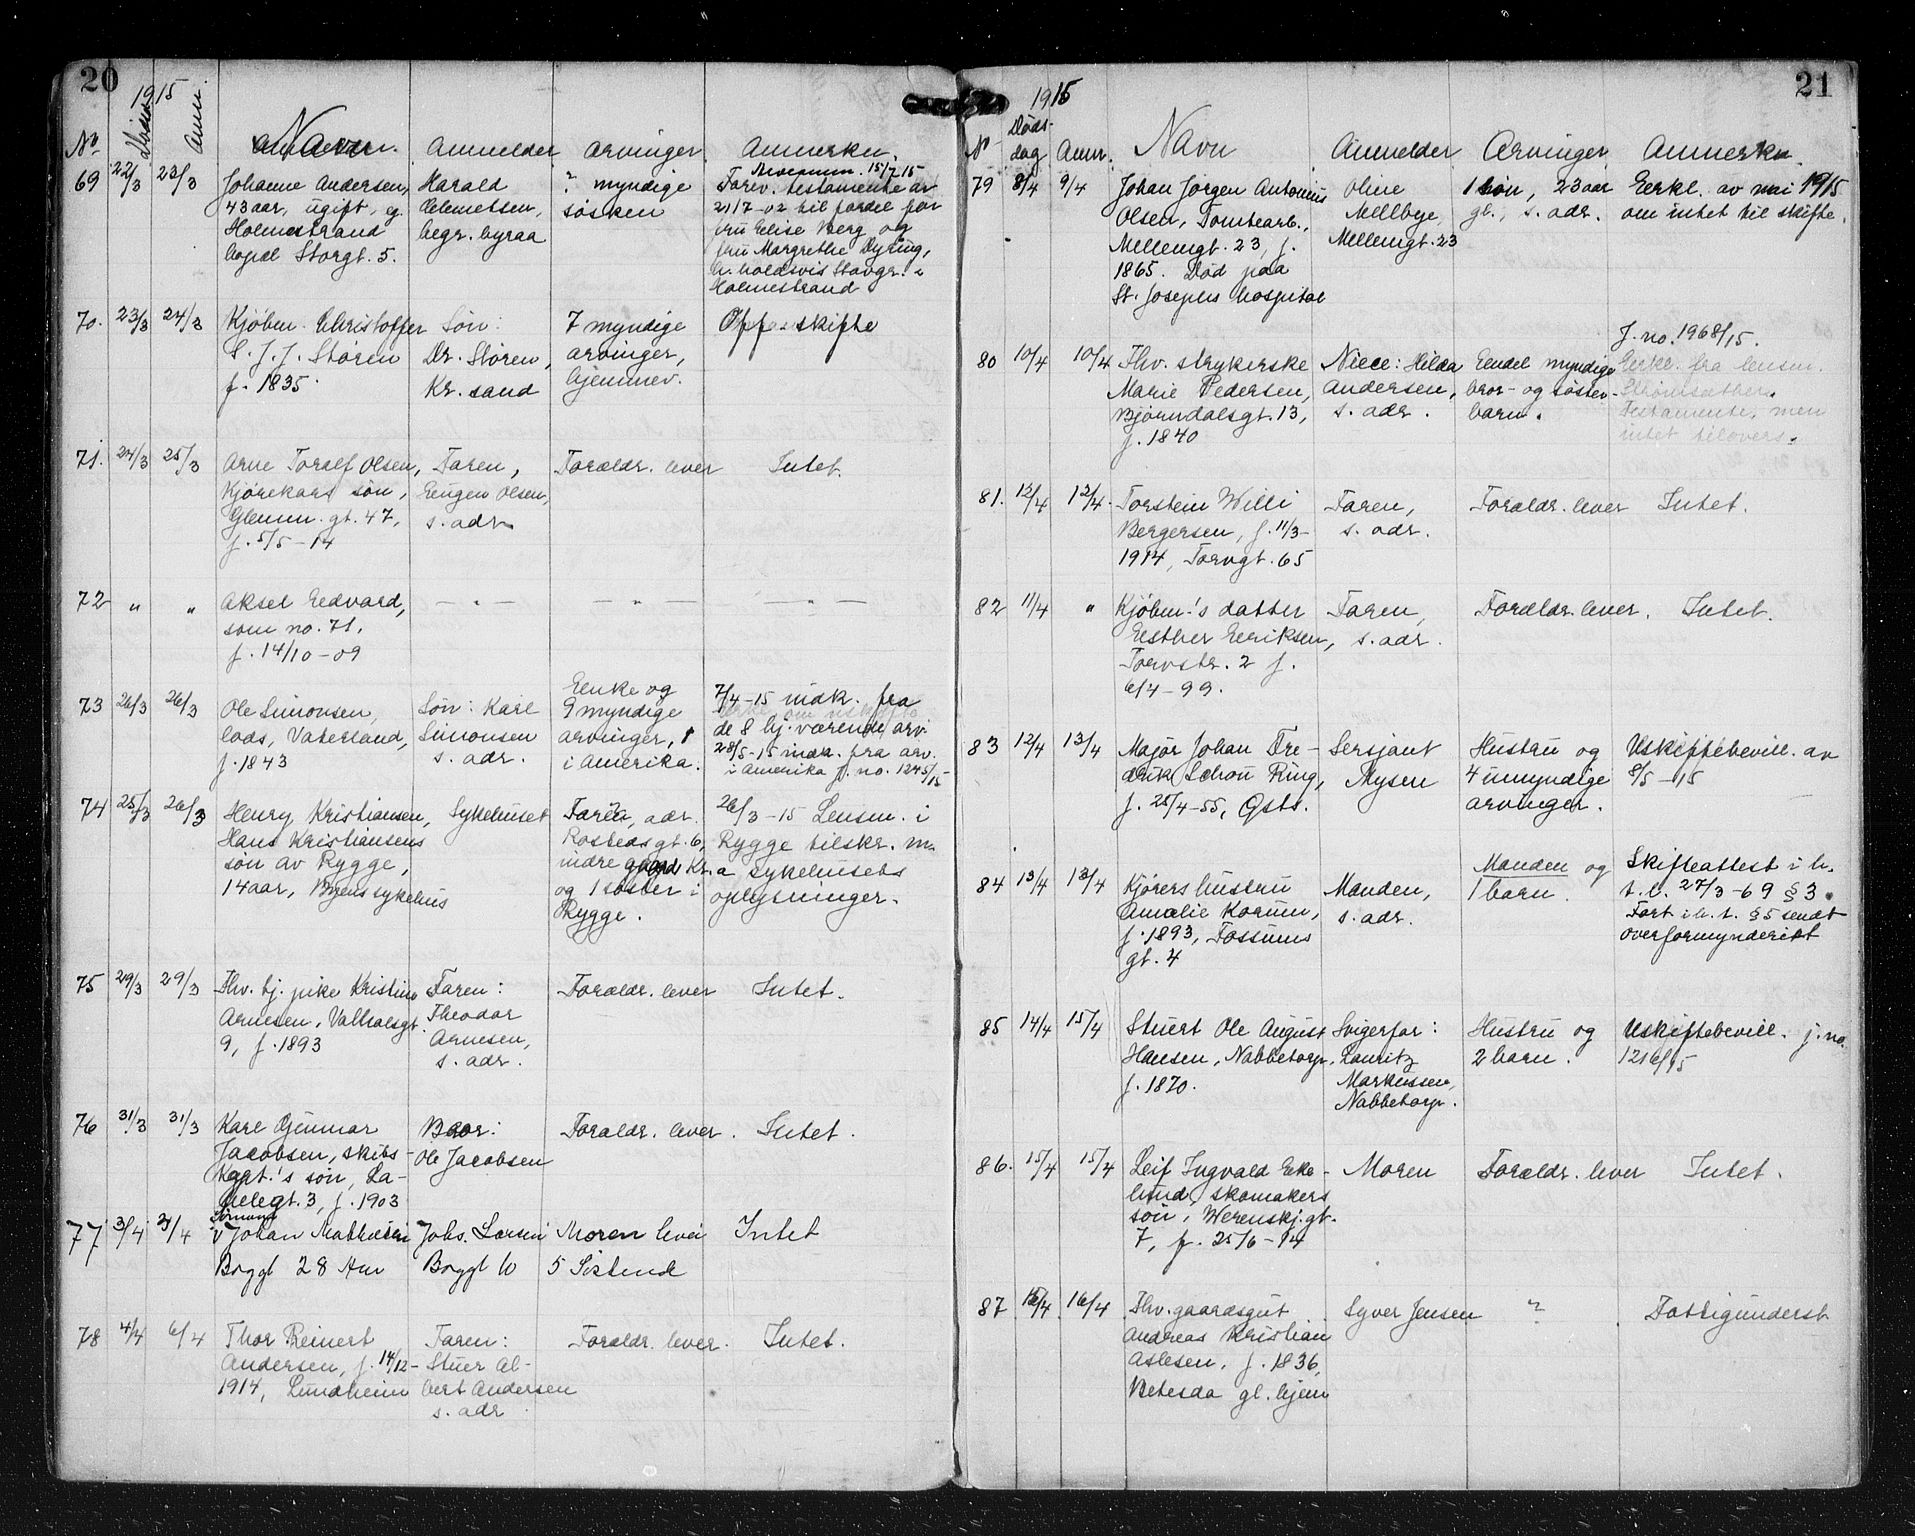 20
1915
No. Dødsd. Anm. Navn. Anmelder Arvinger. Anmerkn.
69 22/3 23/3
Johanne Andersen,
43 aar, ugift, eg.
Holmestrand
bopæl Storgt. 5.
Harald
Clemetsen,
begr. byraa
? myndige
søsken
15/7 15
Forev. testamente av
21/7-02 til fordel for
fru Elise Berg og
fru Margrethe Dyring,
h. holdsvis Stavgr. i
Holmestrand
70. 23/3 24/3
Kjøbm. Christoffer
S. J. J. Støren
f. 1835.
Søn:
Dr. Støren,
Kr. sand
7 myndige
arvinger,
hjemmev.
Off. skifte
71. 24/3 25/3
Arne Toralf Olsen,
Kjørekars søn,
Glemm. gt. 47,
f. 5/5-14
Faren,
Eugen Olsen,
s. adr.
Forældr. lever
Intet.
72 " "
Aksel Edvard,
som no. 71.
f. 14/10-09
— " —
— " —
— " —
73 26/3 26/3
Ole Simonsen,
lods, Vaterland,
f. 1843
Søn: Karl
Simonsen
s. adr.
Enke og
9 myndige
arvinger, 1
i Amerika.
7/4-15 indk. fra
de 8 hj. værende arv.
28/5-15 indk. fra arv.
i Amerika j. no. 1245/15
74 25/3 26/3
Henry Kristiansen,
Hans Kristiansens
søn av Rygge,
14 aar, Byens sykehus
Sykehuset
Faren, adr.
Rostedsgt. 6,
indre gaard Kr.a
og 1 søster i
Rygge.
26/3-15 Lensm. i
Rygge tilskr. m.
sykehusets
oplysninger.
75 29/3 29/3
Fhv. tj. pike Kristine
Arnesen, Valhalsgt.
9, f. 1893
Faren:
Theodor
Arnesen,
s. adr.
Forældr. lever
Intet.
76 31/3 31/3
Karl Gunnar
Jacobsen, skibs-
kapt.'s søn, La-
f. 1903
Bror:
Ole Jacobsen
Forældr. lever.
Intet.
77 3/4 3/4
Sømand
Johan Mathisen
Boggt 28 Aar
Johs. Larsen
Boggt 10
Moren lever
5 Søskende
Intet
78 4/4 6/4
Thor Reinert
Andersen, f. 14/12-
1914, Lundheim
Faren:
Stuer Al-
bert Andersen
s. adr.
Forældr. lever.
Intet.
21
1915
No Døds-
dag Anm. Navn Anmelder Arvinger Anmerkn.
79 8/4 9/4
Johan Jørgen Antonius
Olsen, Tomtearb.,
Mellemgt. 23, f.
1865. Død paa
St. Josephs hospital
Oline
Mellbye,
Mellemgt. 23
1 søn, 23 aar
gl., s. adr.
Erkl. av mai 1915
om intet til skifte.
80 10/4 10/4
Fhv. strykerske
Marie Pedersen,
Bjørndalsgt. 13,
f. 1840
Niece: Hilda
Andersen,
s. adr.
Endel myndige
bror- og søster-
barn.
J. no. 1968/15.
Erkl. fra lensm.
Testamente, men
intet tilovers.
81. 12/4 12/4.
Torstein Willi
Bergersen, f. 11/3-
1914, Torvgt. 65
Faren,
s. adr.
Forældr. lever
Intet.
82 11/4 "
Kjøbm.'s datter
Esther Eriksen,
Torvstr. 2 f.
6/4-99.
Faren,
s. adr.
Forældr. lever.
Intet.
83 12/4 13/4
Major Johan Fre-
drik Schou Ring,
f. 25/4-55, Gsts.
Sersjant
Mysen
Hustru og
4 umyndige
arvinger.
Uskiftebevill. av
8/5-15
84 13/4 13/4
Kjørers hustru
Amalie Korum,
f. 1893, Fossums
gt. 4
Manden,
s. adr.
Manden og
1 barn.
Skifteattest i h.
t. l. 27/3-69 § 3.
Fort. i h. t. § 5 sendt
overformynderiet
85 14/4 15/4
Stuert Ole August
Hansen, Nabbetorp.
f. 1870.
Svigerfar:
Lauritz
Markussen,
Nabbetorp.
Hustru og
2 barn.
Uskiftebevill. j. no.
1216/15
86. 15/4 15/4
Leif Ingvald Eke-
lund, skomakers
søn, Werenskj. gt.
7, f. 25/6-14
Moren
Forældr. lever
Intet.
87 15/4 16/4
Fhv. gaardsgut
Andreas Kristian
Aslesen, f. 1836,
Betesda gl. hjem
Syver Jensen
?
Fattigunderst.